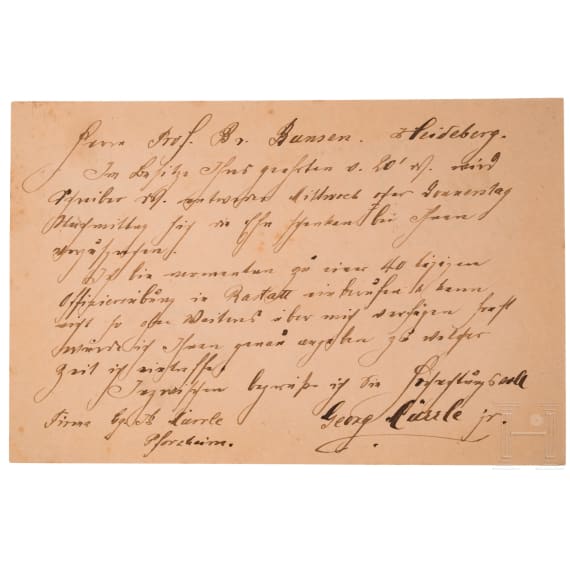 Herrn Prof. Dr. Bunsen. Heidelberg.
Im Besitze Ihres geehrten v. 20' ds. wird
Schreiber ds. entweder Mittwoch oder Donnerstag
Nachmittag sich die Ehre schenken bei Ihnen
vorzusprechen.
Ich bin momentan zu einer 40 tägigen
Offiziersübung in Rastatt einberufen & kann
nicht so ohne Weiteres über mich verfügen sonst
würde ich Ihnen genau angeben zu welcher
Zeit ich eintreffe.
Inzwischen begrüße ich Sie Hochachtungsvoll
Firma Georg jr.
Pforzheim.